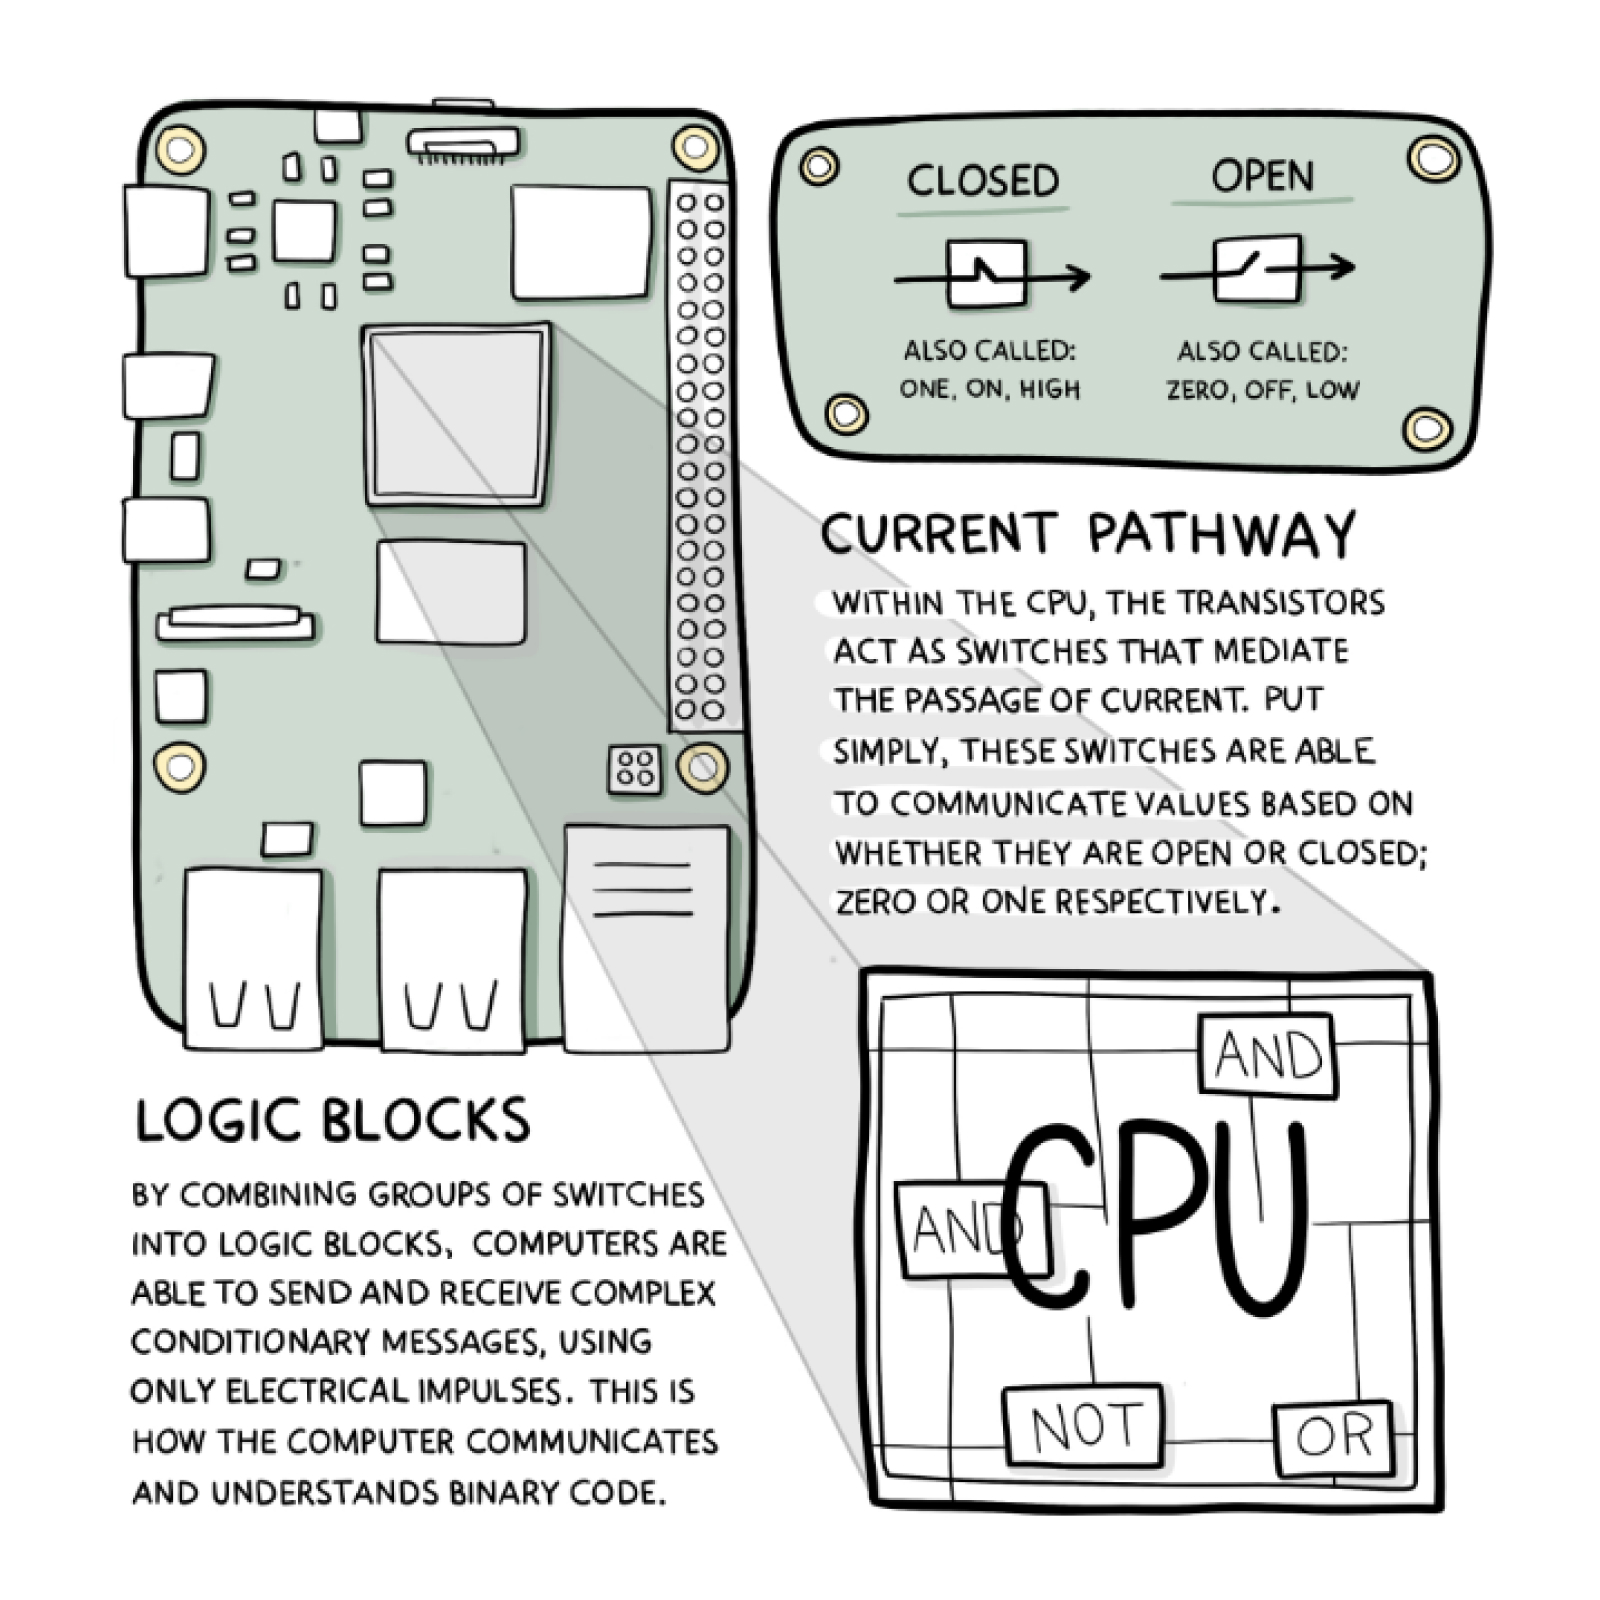 CLOSED
OPEN
ALSO CALLED:
ONE, ON, HIGH
ALSO CALLED:
ZERO, OFF, LOW
CURRENT PATHWAY
WITHIN THE CPU, THE TRANSISTORS
ACT AS SWITCHES THAT MEDIATE
THE PASSAGE OF CURRENT. PUT
SIMPLY, THESE SWITCHES ARE ABLE
TO COMMUNICATE VALUES BASED ON
WHETHER THEY ARE OPEN OR CLOSED;
ZERO OR ONE RESPECTIVELY.
LOGIC BLOCKS
BY COMBINING GROUPS OF SWITCHES
INTO LOGIC BLOCKS, COMPUTERS ARE
ABLE TO SEND AND RECEIVE COMPLEX
CONDITIONARY MESSAGES, USING
ONLY ELECTRICAL IMPULSES. THIS IS
HOW THE COMPUTER COMMUNICATES
AND UNDERSTANDS BINARY CODE.
AND
AND
CPU
NOT
OR